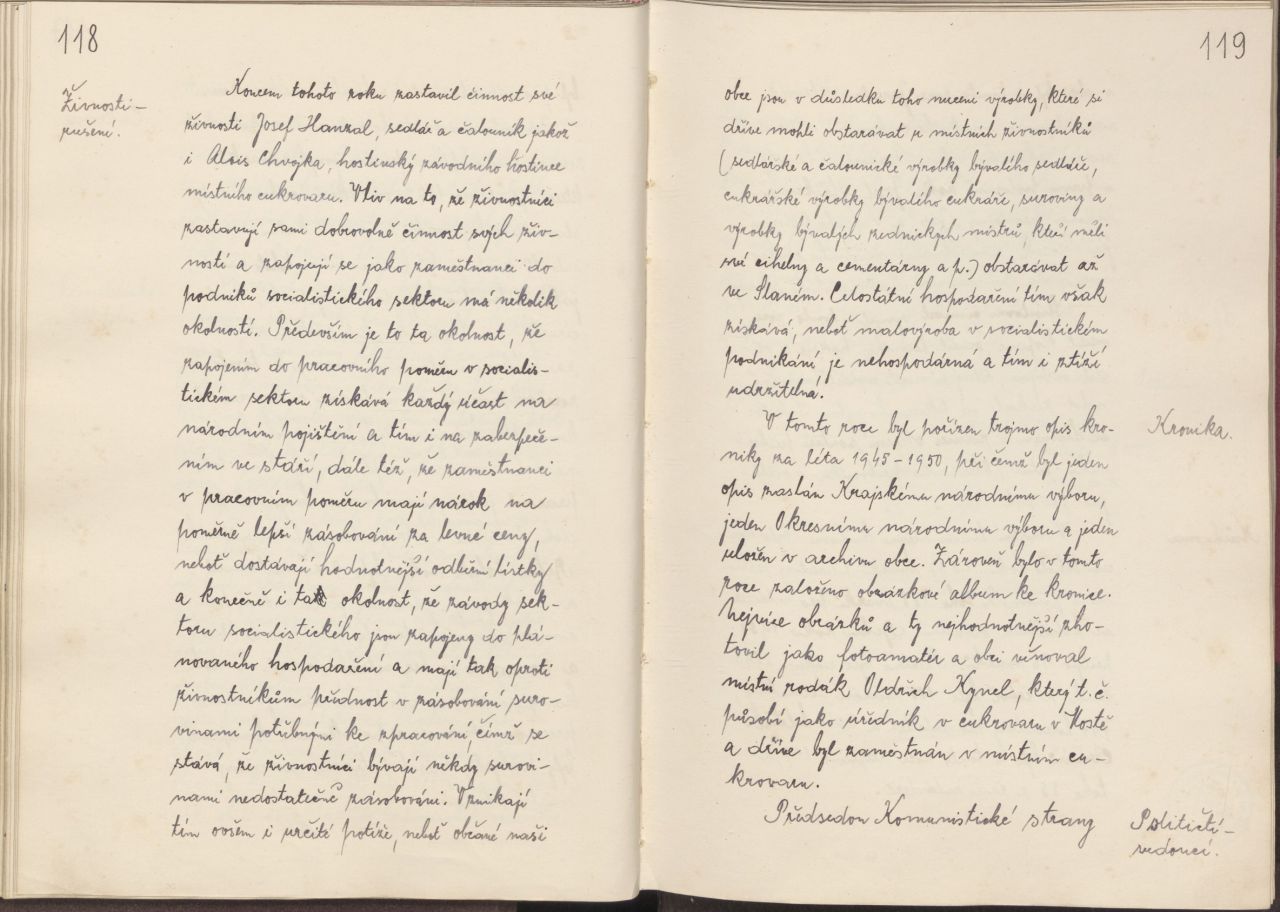 118
Živnosti –
rušení.
Koncem tohoto roku zastavil činnost své
živnosti Josef Hanzal, sedlář a čalouník jakož
i Alois Chvojka, hostinský závodního hostince
místního cukrovaru. Vliv na to, že živnostníci
zastavují sami dobrovolně činnost svých živ-
ností a zapojují se jako zaměstnanci do
podniků socialistického sektoru má několik
okolností. Především je to ta okolnost, že
zapojením do pracovního poměru v socialis-
tickém sektoru získává každý účast na
národním pojištění a tím i na zabezpeče-
ním ve stáří, dále též, že zaměstnanci
v pracovním poměru mají nárok na
poměrně lepší zásobování za levné ceny,
neboť dostávají hodnotnější odběrní lístky
a konečně i ta okolnost, že závody sek-
toru socialistického jsou zapojeny do plá-
novaného hospodaření a mají tak oproti
živnostníkům přednost v zásobování suro-
vinami potřebnými ke zpracování, čímž se
stává, že živnostníci bývají někdy surovi-
nami nedostatečně zásobováni. Vznikají
tím ovšem i určité potíže, neboť občané naší
119
obce jsou v důsledku toho nuceni výrobky, které si
dříve mohli obstarávat u místních živnostníků
(sedlářské a čalounické výrobky bývalého sedláře,
cukrářské výrobky bývalého cukráře, suroviny a
výrobky bývalých zednických mistrů, kteří měli
své cihelny a cementárny a p.) obstarávat až
ve Slaném. Celostátní hospodaření tím však
získává, neboť malovýroba v socialistickém
podnikání je nehospodárná a tím i ztíží
udržitelná.
V tomto roce byl pořízen trojmo opis kro-
niky za léta 1945–1950, při čemž byl jeden
opis zaslán Krajskému národnímu výboru,
jeden Okresnímu národnímu výboru a jeden
uložen v archivu obce. Zároveň bylo v tomto
roce založeno obrázkové album ke kronice.
Nejvíce obrázků a ty nejhodnotnější zho-
tovil jako fotoamatér a obci věnoval
místní rodák Oldřich Kynel, který t. č.
působí jako úředník v cukrovaru v Hostě
a dříve byl zaměstnán v místním cu-
krovaru.
Kronika.
Předsedou Komunistické strany
Političtí –
vedoucí.